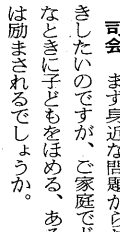 司会　まず身近な問題から
きしたいのですが、ご家庭でど
なときに子どもをほめる、ある
は励まされるでしょうか。